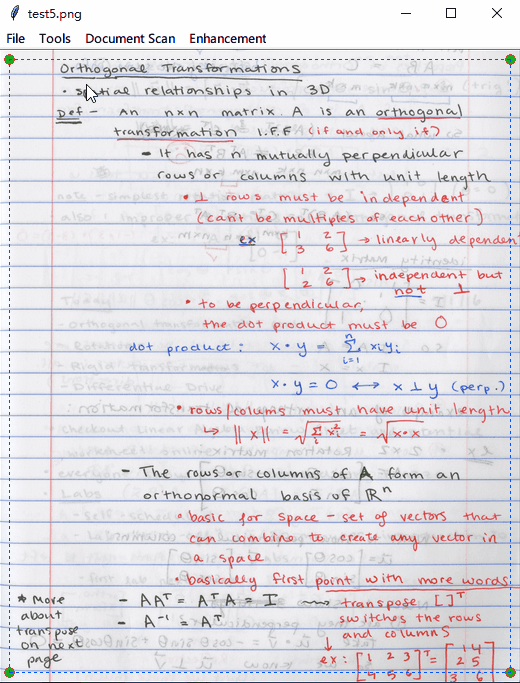 test5.png
File Tools Document Scan Enhancement
Orthogonal Transformations
• spatial relationships in 3D
Def - An n×n matrix A is an orthogonal
transformation I.F.F (if and only if)
- It has n mutually perpendicular
rows or columns with unit length
• ⊥ rows must be independent
(can't be multiples of each other)
ex [1 2
3 6] → linearly dependent
[1 2
2 6] → independent but
not ⊥
• to be perpendicular,
the dot product must be 0
dot product: x • y = Σ_{i=1}^{n} xᵢyᵢ
x • y = 0 ⟷ x ⊥ y (perp.)
• rows/colums must have unit length
↳ ||x|| = √(Σᵢ xᵢ²) = √(x•x)
- The rows or columns of A form an
orthonormal basis of ℝⁿ
• basic for space - set of vectors that
can combine to create any vector in
a space
• basically first point with more words
* More
about
transpose
on next
page
- AAᵀ = AᵀA = I ⟿ transpose [ ]ᵀ
- A⁻¹ = Aᵀ
switches the rows
and columns
↓
ex: [1 2 3
4 5 6]ᵀ = [1 4
2 5
3 6]